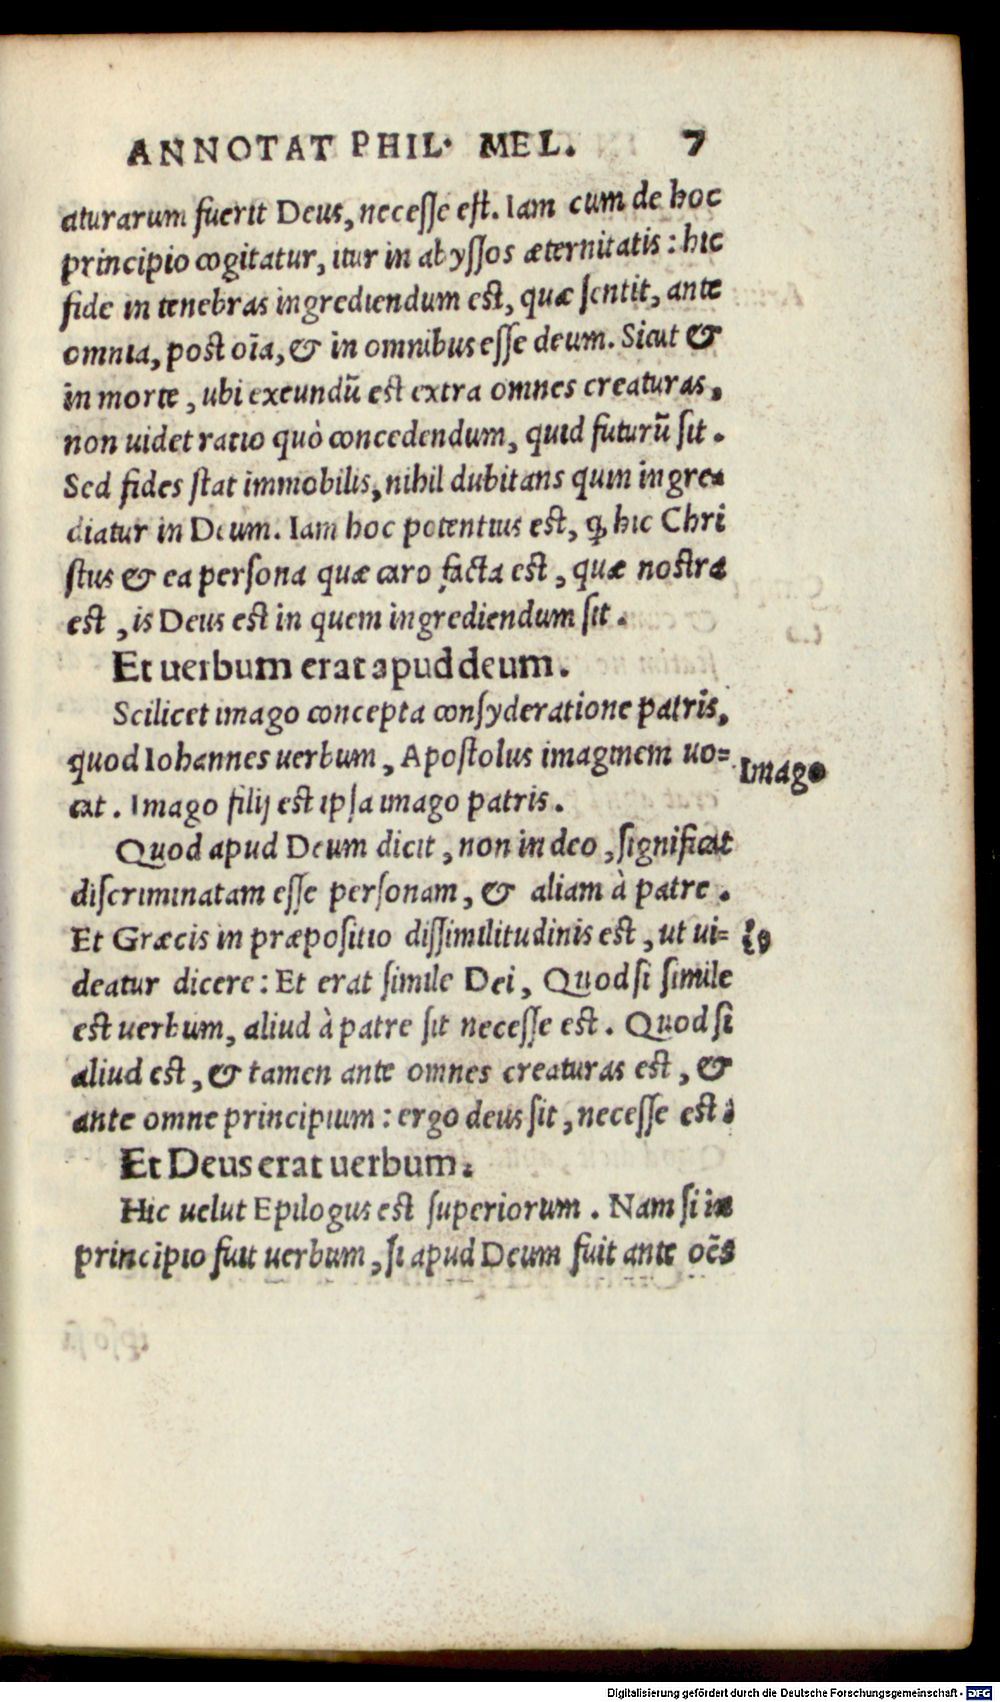 ANNOTAT PHIL. MEL. 7
aturarum fuerit Deus, necesse est. Iam cum de hoc
principio cogitatur, itur in abyssos æternitatis: hic
fide in tenebras ingrediendum est, quæ sentit, ante
omnia, post oīa, & in omnibus esse deum. Sicut &
in morte, ubi exeundū est extra omnes creaturas,
non uidet ratio quò concedendum, quid futurū sit.
Sed fides stat immobilis, nihil dubitans quin ingre-
diatur in Deum. Iam hoc potentius est, ꝙ hic Chri
stus & ea persona quæ caro facta est, quæ nostra
est, is Deus est in quem ingrediendum sit.
Et uerbum erat apud deum.
Scilicet imago concepta consyderatione patris,
quod Iohannes uerbum, Apostolus imaginem uo=
Imago
cat. Imago filij est ipsa imago patris.
Quod apud Deum dicit, non in deo, significat
discriminatam esse personam, & aliam à patre.
Et Græcis in præpositio dissimilitudinis est, ut ui=
deatur dicere: Et erat simile Dei, Quod si simile
est uerbum, aliud à patre sit necesse est. Quod si
aliud est, & tamen ante omnes creaturas est, &
ante omne principium: ergo deus sit, necesse est.
Et Deus erat uerbum.
Hic uelut Epilogus est superiorum. Nam si in
principio fuit uerbum, si apud Deum fuit ante oēs
Digitalisierung gefördert durch die Deutsche Forschungsgemeinschaft - DFG